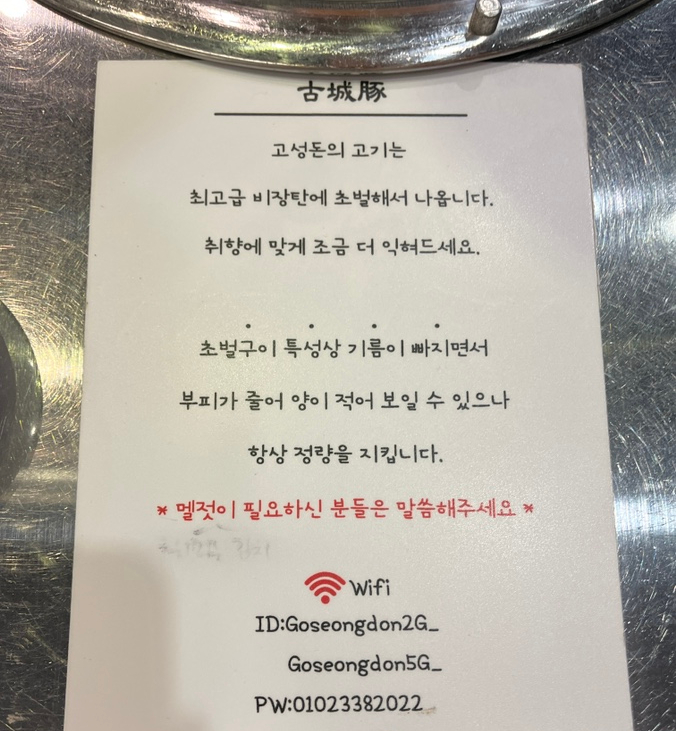 古城豚
고성돈의 고기는
최고급 비장탄에 초벌해서 나옵니다.
취향에 맞게 조금 더 익혀드세요.
초벌구이 특성상 기름이 빠지면서
부피가 줄어 양이 적어 보일 수 있으나
항상 정량을 지킵니다.
* 멜젓이 필요하신 분들은 말씀해주세요 *
Wifi
ID:Goseongdon2G_
Goseongdon5G_
PW:01023382022